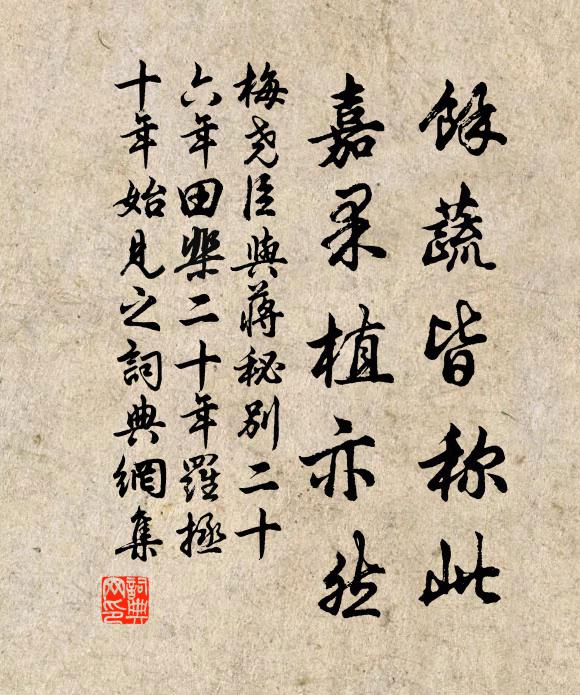 餘蔬皆称此
嘉果植亦然
梅尧臣與蔣秘别二十
六年田棐二十年羅拯
十年始見之詞典網集
詞典
网印